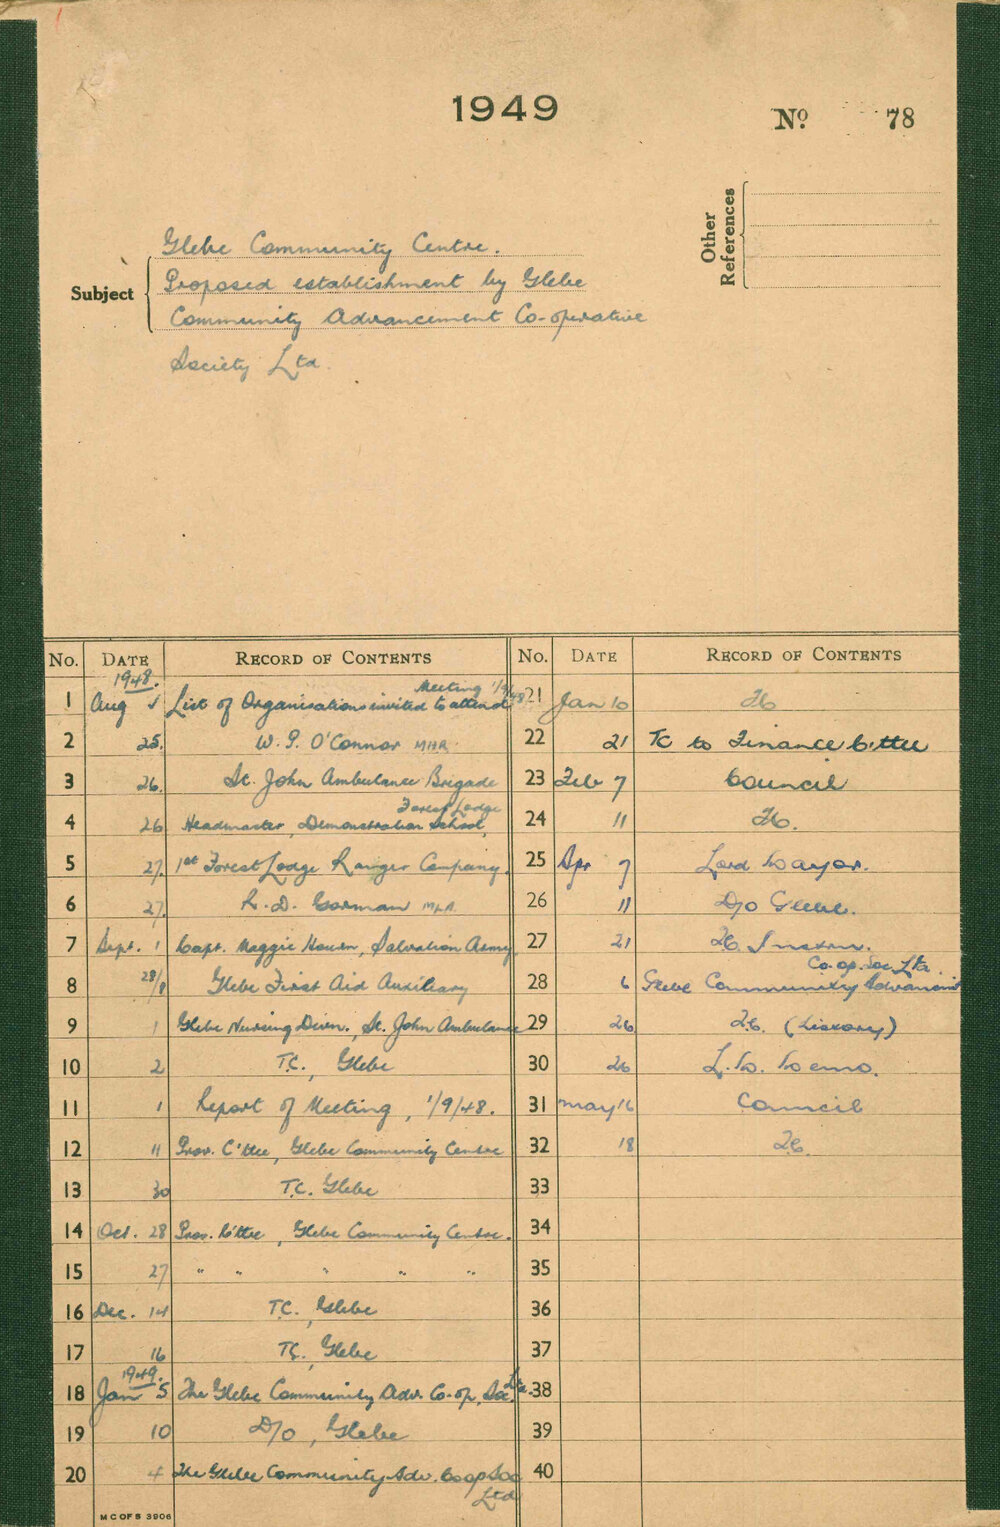 1949
No 78
Other References
Subject
Glebe Community Centre.
Proposed establishment by Glebe
Community Advancement Co-operative
Society Ltd.
No. DATE RECORD OF CONTENTS
1948.
1 Aug List of Organisations invited to attend Meeting 1/9/48
2 25. W. P. O'Connor MHR.
3 26. St. John Ambulance Brigade
4 26 Headmaster, Demonstration School, Forest Lodge
5 27. 1st Forest Lodge Ranger Company.
6 27. R. D. Gorman MLA.
7 Sept. 1 Capt. Maggie , Salvation Army
8 28/8 Glebe First Aid Auxiliary
9 1 Glebe Nursing Divn., St. John Ambulance
10 2 T.C., Glebe
11 1 Report of Meeting, 1/9/48.
12 11 Prov. C'ttee, Glebe Community Centre
13 30 T.C. Glebe
14 Oct. 28 Prov. C'ttee, Glebe Community Centre.
15 27 " " " " "
16 Dec. 14 T.C., Glebe
17 16 T.C., Glebe
1949.
18 Jan 5 The Glebe Community Adv. Co-op. Soc. Ltd.
19 10 D/O, Glebe
20 4 The Glebe Community Adv. Co op Soc Ltd
MCOFS 3906
No. DATE RECORD OF CONTENTS
21 Jan 10
22 21 TC to Finance C'ttee
23 Feb 7 Council
24 11
25 Apr 7 Lord Mayor.
26 11 D/O Glebe.
27 21
28 6 Glebe Community Advancmt Co-op. Soc. Ltd.
29 26 (Library)
30 26 L.M. Memo.
31 May 16 Council
32 18
33
34
35
36
37
38
39
40